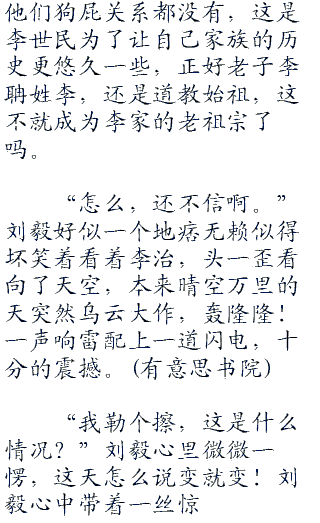 他们狗屁关系都没有，这是
李世民为了让自己家族的历
史更悠久一些，正好老子李
聃姓李，还是道教始祖，这
不就成为李家的老祖宗了
吗。
“怎么，还不信啊。”
刘毅好似一个地痞无赖似得
坏笑着看着李治，头一歪看
向了天空，本来晴空万里的
天突然乌云大作，轰隆隆！
一声响雷配上一道闪电，十
分的震撼。(有意思书院)
“我勒个擦，这是什么
情况？” 刘毅心里微微一
愣，这天怎么说变就变！刘
毅心中带着一丝惊